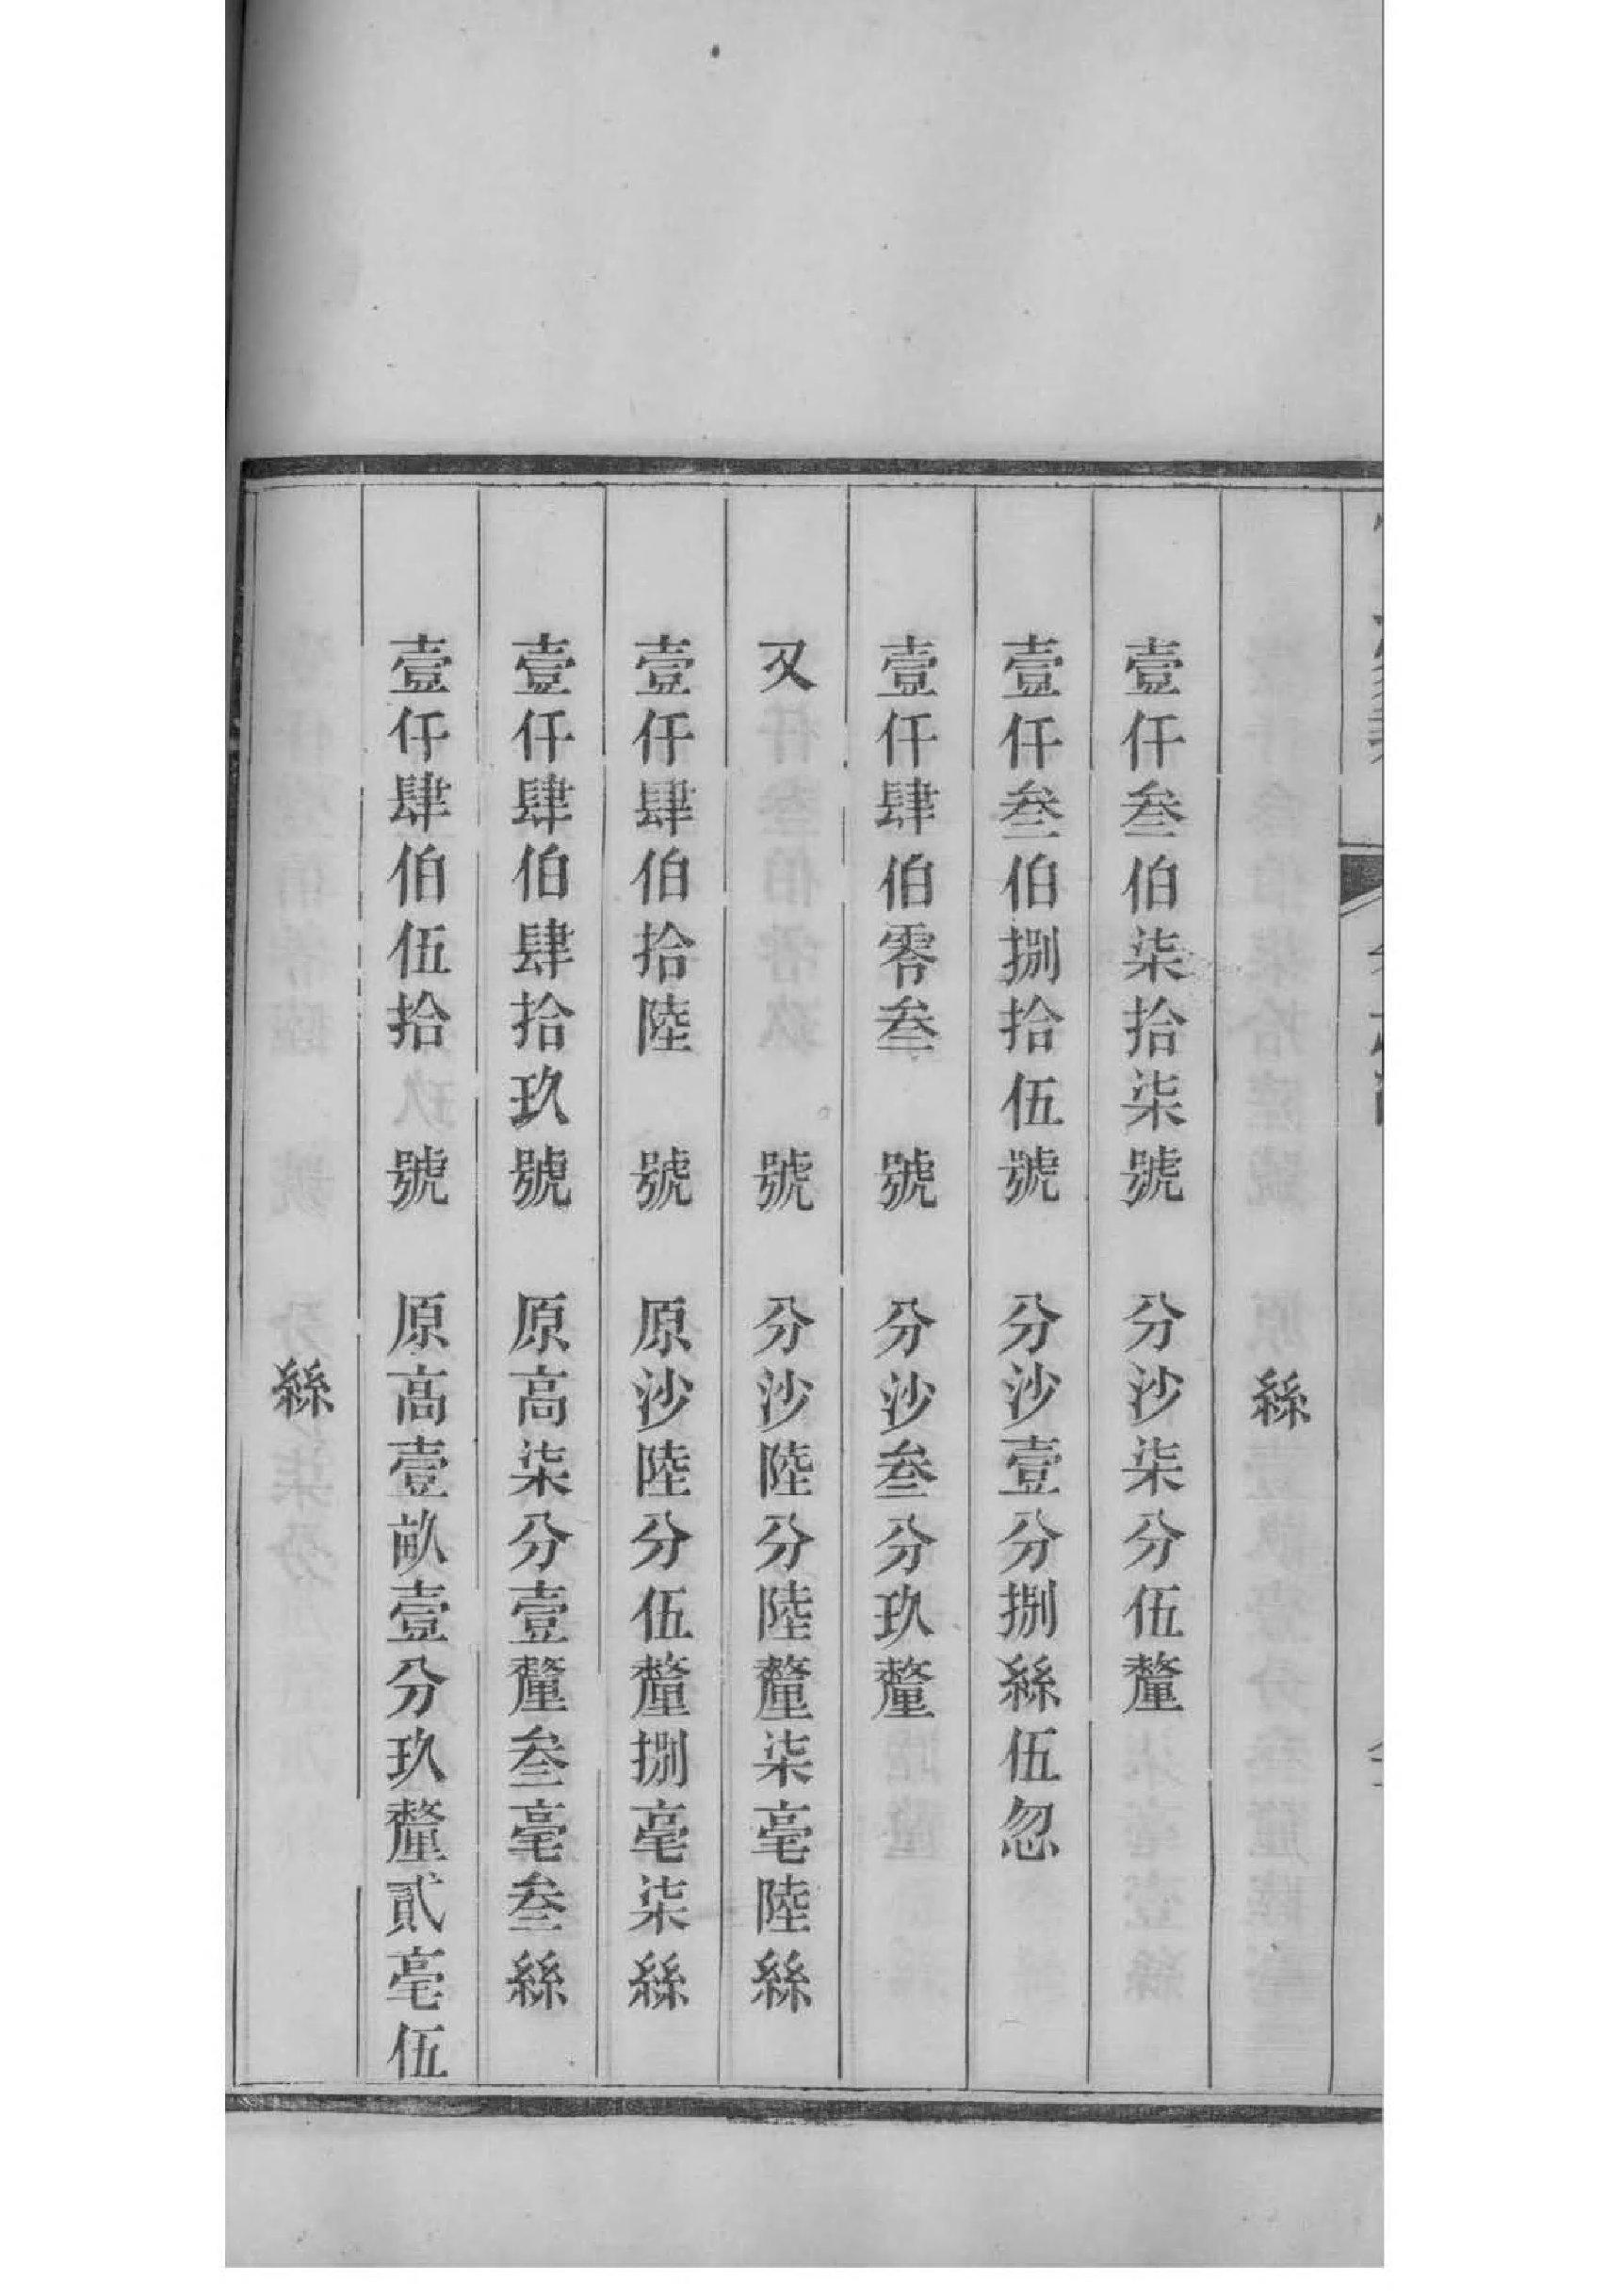 絲
壹仟叁伯柒拾柒號　分沙柒分伍釐
壹仟叁伯捌拾伍號　分沙壹分捌絲伍忽
壹仟肆伯零叁　號　分沙叁分玖釐
又　號　分沙陸分陸釐柒毫陸絲
壹仟肆伯拾陸　號　原沙陸分伍釐捌毫柒絲
壹仟肆伯肆拾玖號　原高柒分壹釐叁毫叁絲
壹仟肆伯伍拾　號　原高壹畝壹分玖釐貳毫伍
絲